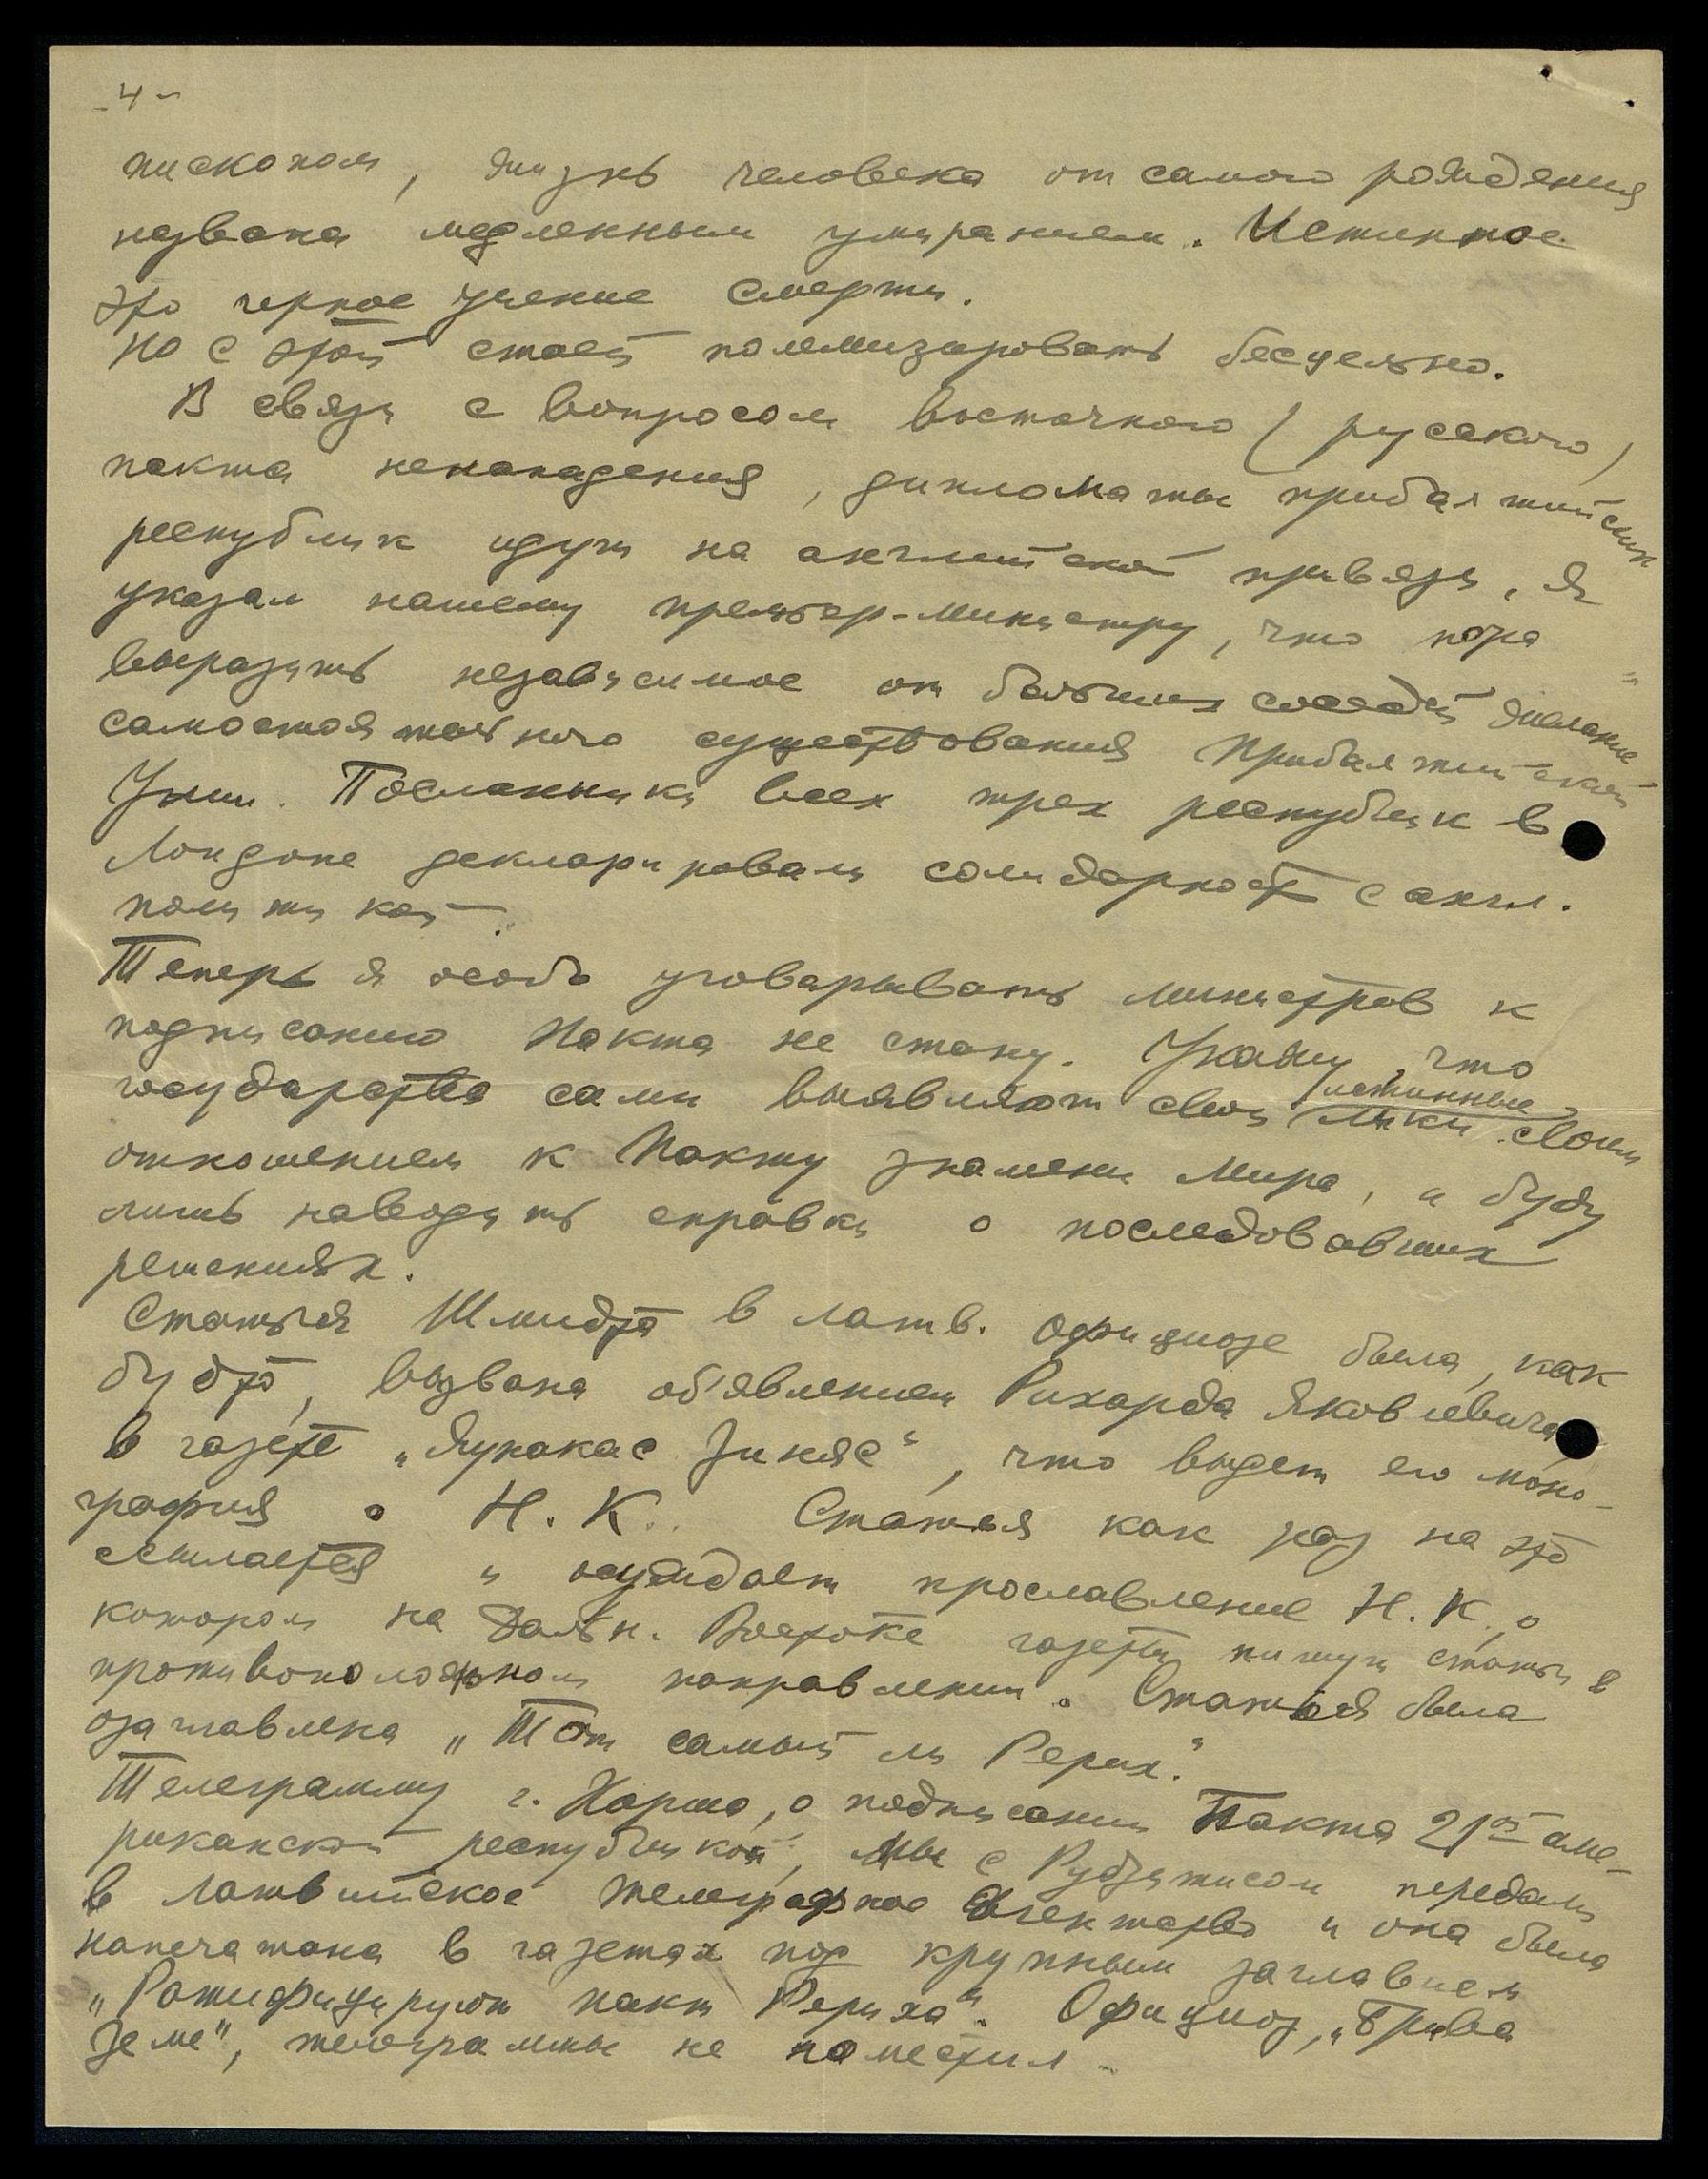 - 4 -
пископом, жизнь человека от самого рождения
названа медленным умиранием. Истинное
это черное учение смерти.
Но с этой стаей полемизировать бесцельно.
В связи с вопросом восточного (русского)
пакта ненападения, дипломаты прибалтийских
республик идут на английской привязи, я
указал нашему премьер-министру, что пора
выразить независимое от больших соседей желание
самостоятельного существования Прибалтийской
Унии. Посланники всех трех республик в
Лондоне декларировали солидарность с англ.
политикой.
Теперь я особо уговаривать министров к
подписанию Пакта не стану. Укажу, что
государства сами выявляют свои истинные лики своим
отношением к Пакту знамени Мира, и буду
лишь наводить справки о последовавших
решениях.
Статья Шмидта в латв. официозе была, как
будто, вызвана об'явлением Рихарда Яковлевича
в газете „Яунакас Зиняс", что выдет его моно-
графия о Н. К. Статья как раз на это
ссылается и осуждает прославление Н. К., о
котором на Дальн. Востоке газеты пишут статьи в
противоположном направлении. Статья была
озаглавлена „Тот самый ли Рерих."
Телеграмму г. Хорша, о подписании Пакта 21ой аме-
риканской республикой, мы с Рудзитисом передали
в Латвийское телеграфное агентство и она была
напечатана в газетах под крупным заглавием
„Ратифицируют пакт Рериха". Официоз, „Брива
Земе", телеграммы не поместил.